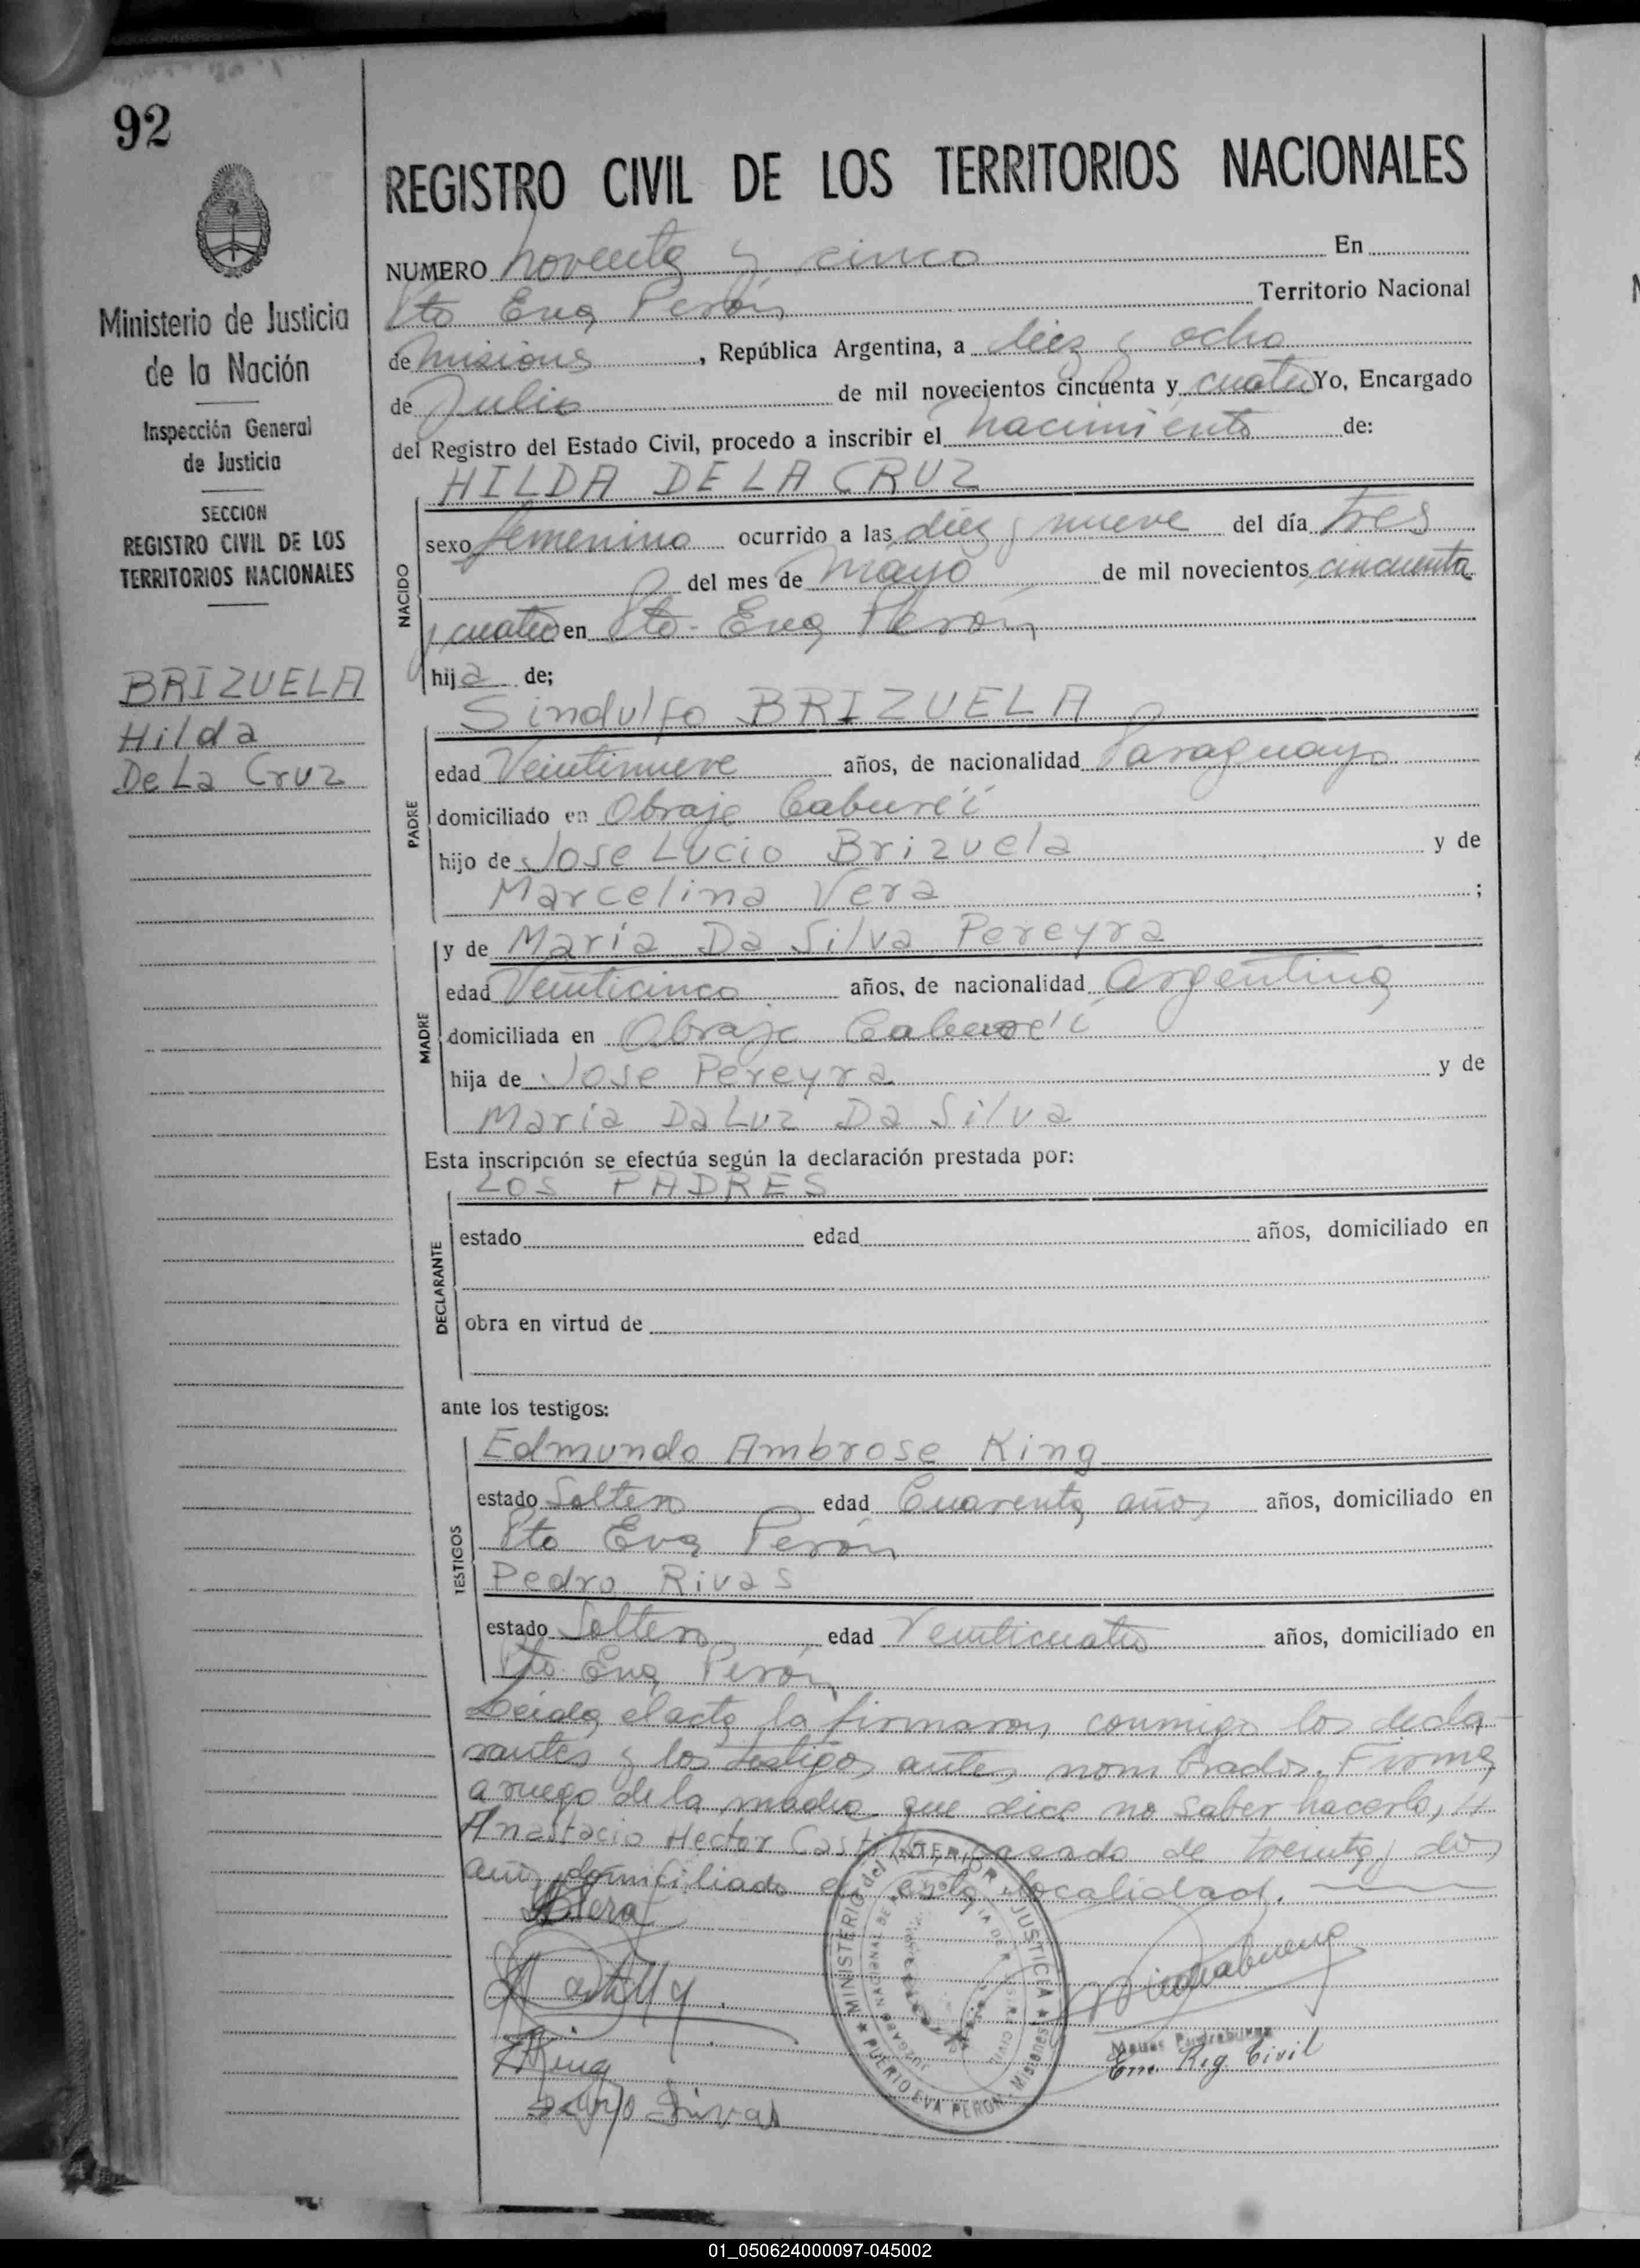 92
Ministerio de Justicia
de la Nación
Inspección General
de Justicia
SECCION
REGISTRO CIVIL DE LOS
TERRITORIOS NACIONALES
BRIZUELA
Hilda
De La Cruz
REGISTRO CIVIL DE LOS TERRITORIOS NACIONALES
NUMERO noventa y cinco En
Pto Eva Perón Territorio Nacional
de Misiones, República Argentina, a diez y ocho
de Julio de mil novecientos cincuenta y cuatro Yo, Encargado
del Registro del Estado Civil, procedo a inscribir el nacimiento de:
HILDA DE LA CRUZ
NACIDO
sexo femenino ocurrido a las diez y nueve del día tres
del mes de mayo de mil novecientos cincuenta
y cuatro en Pto. Eva Perón
hija de;
Sindulfo BRIZUELA
PADRE
edad Veintinueve años, de nacionalidad Paraguayo
domiciliado en Obraje Caburé'í
hijo de Jose Lucio Brizuela y de
Marcelina Vera ;
MADRE
y de María Da Silva Pereyra
edad Veinticinco años, de nacionalidad Argentina
domiciliada en Obraje Caburé'í
hija de Jose Pereyra y de
María Da Luz Da Silva
Esta inscripción se efectúa según la declaración prestada por:
LOS PADRES
DECLARANTE
estado edad años, domiciliado en
obra en virtud de
ante los testigos:
TESTIGOS
Edmundo Ambrose King
estado Soltero edad Cuarenta años años, domiciliado en
Pto Eva Perón
Pedro Rivas
estado Soltero edad Veinticuatro años, domiciliado en
Pto Eva Perón
Leida el acta la firmaron conmigo los decla-
rantes y los testigos antes nombrados. Firma
a ruego de la madre que dice no saber hacerlo,
Anastacio Hector Castillo, casado de treinta y dos
años domiciliado en esta localidad.
MINISTERIO del INTERIOR y JUSTICIA
PUERTO EVA PERON - Misiones
King
Pedro Rivas
Enc. Reg. Civil
01_050624000097-045002